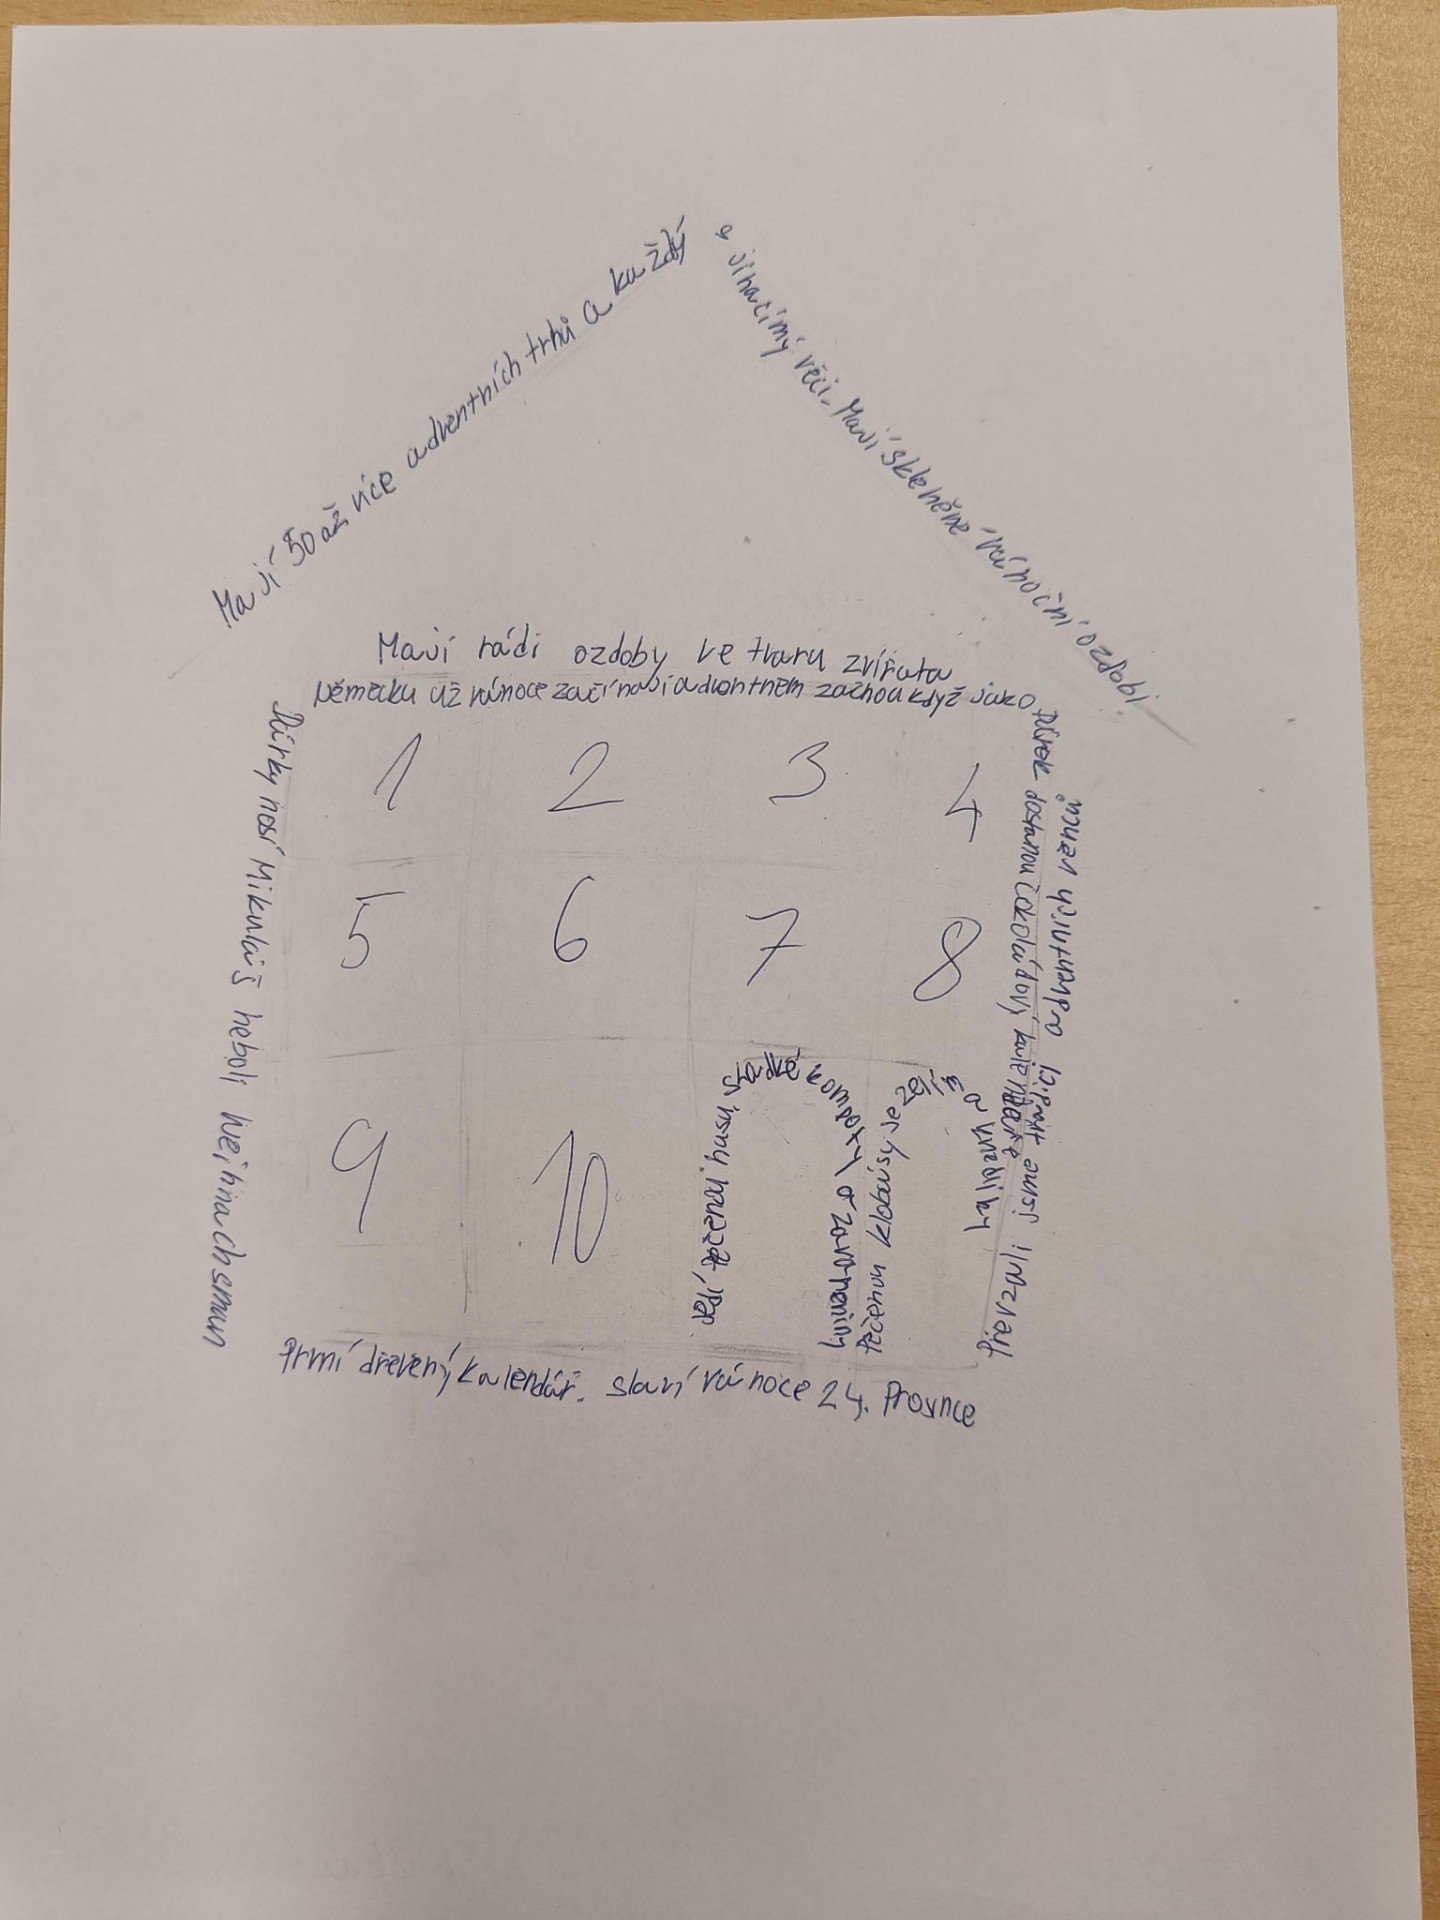 Mají 50 až více adventních trhů a každý
s jinačímý věci. Mají skleněné vánoční ozdobi.
Mají rádi ozdoby ve tvaru zvířata
Německu už vánoce začínají adventnem začnou když jako
Dárky nosí Mikuláš neboli Weihnachsman
Dárek dostanou čokoládový kalendáře
Převzali jsme tradici adventních věnců
1 2 3 4
5 6 7 8
9 10
Jedí pečenou husu, sladké kompoty a zavařeniny
Pečenou klobásy se zelím a knedlíky
Prvmí dřevený kalendář. slaví vánoce 24. Prosince